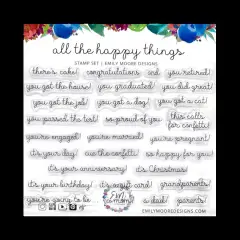 all the happy things
STAMP SET | EMILY MOORE DESIGNS
there's cake! congratulations and you retired!
you got the house! you graduated! you did great!
you got the job! you got a dog! you got a cat!
you passed the test! so proud of you this calls for confetti!
you're engaged! you're married! you're pregnant!
it's your day! cue the confetti! so happy for you
it's your anniversary! it's Christmas!
it's your birthday! it's a gift card! grandparents!
you're going to be a mom! a dad! parents!
EMILYMOOREDESIGNS.COM